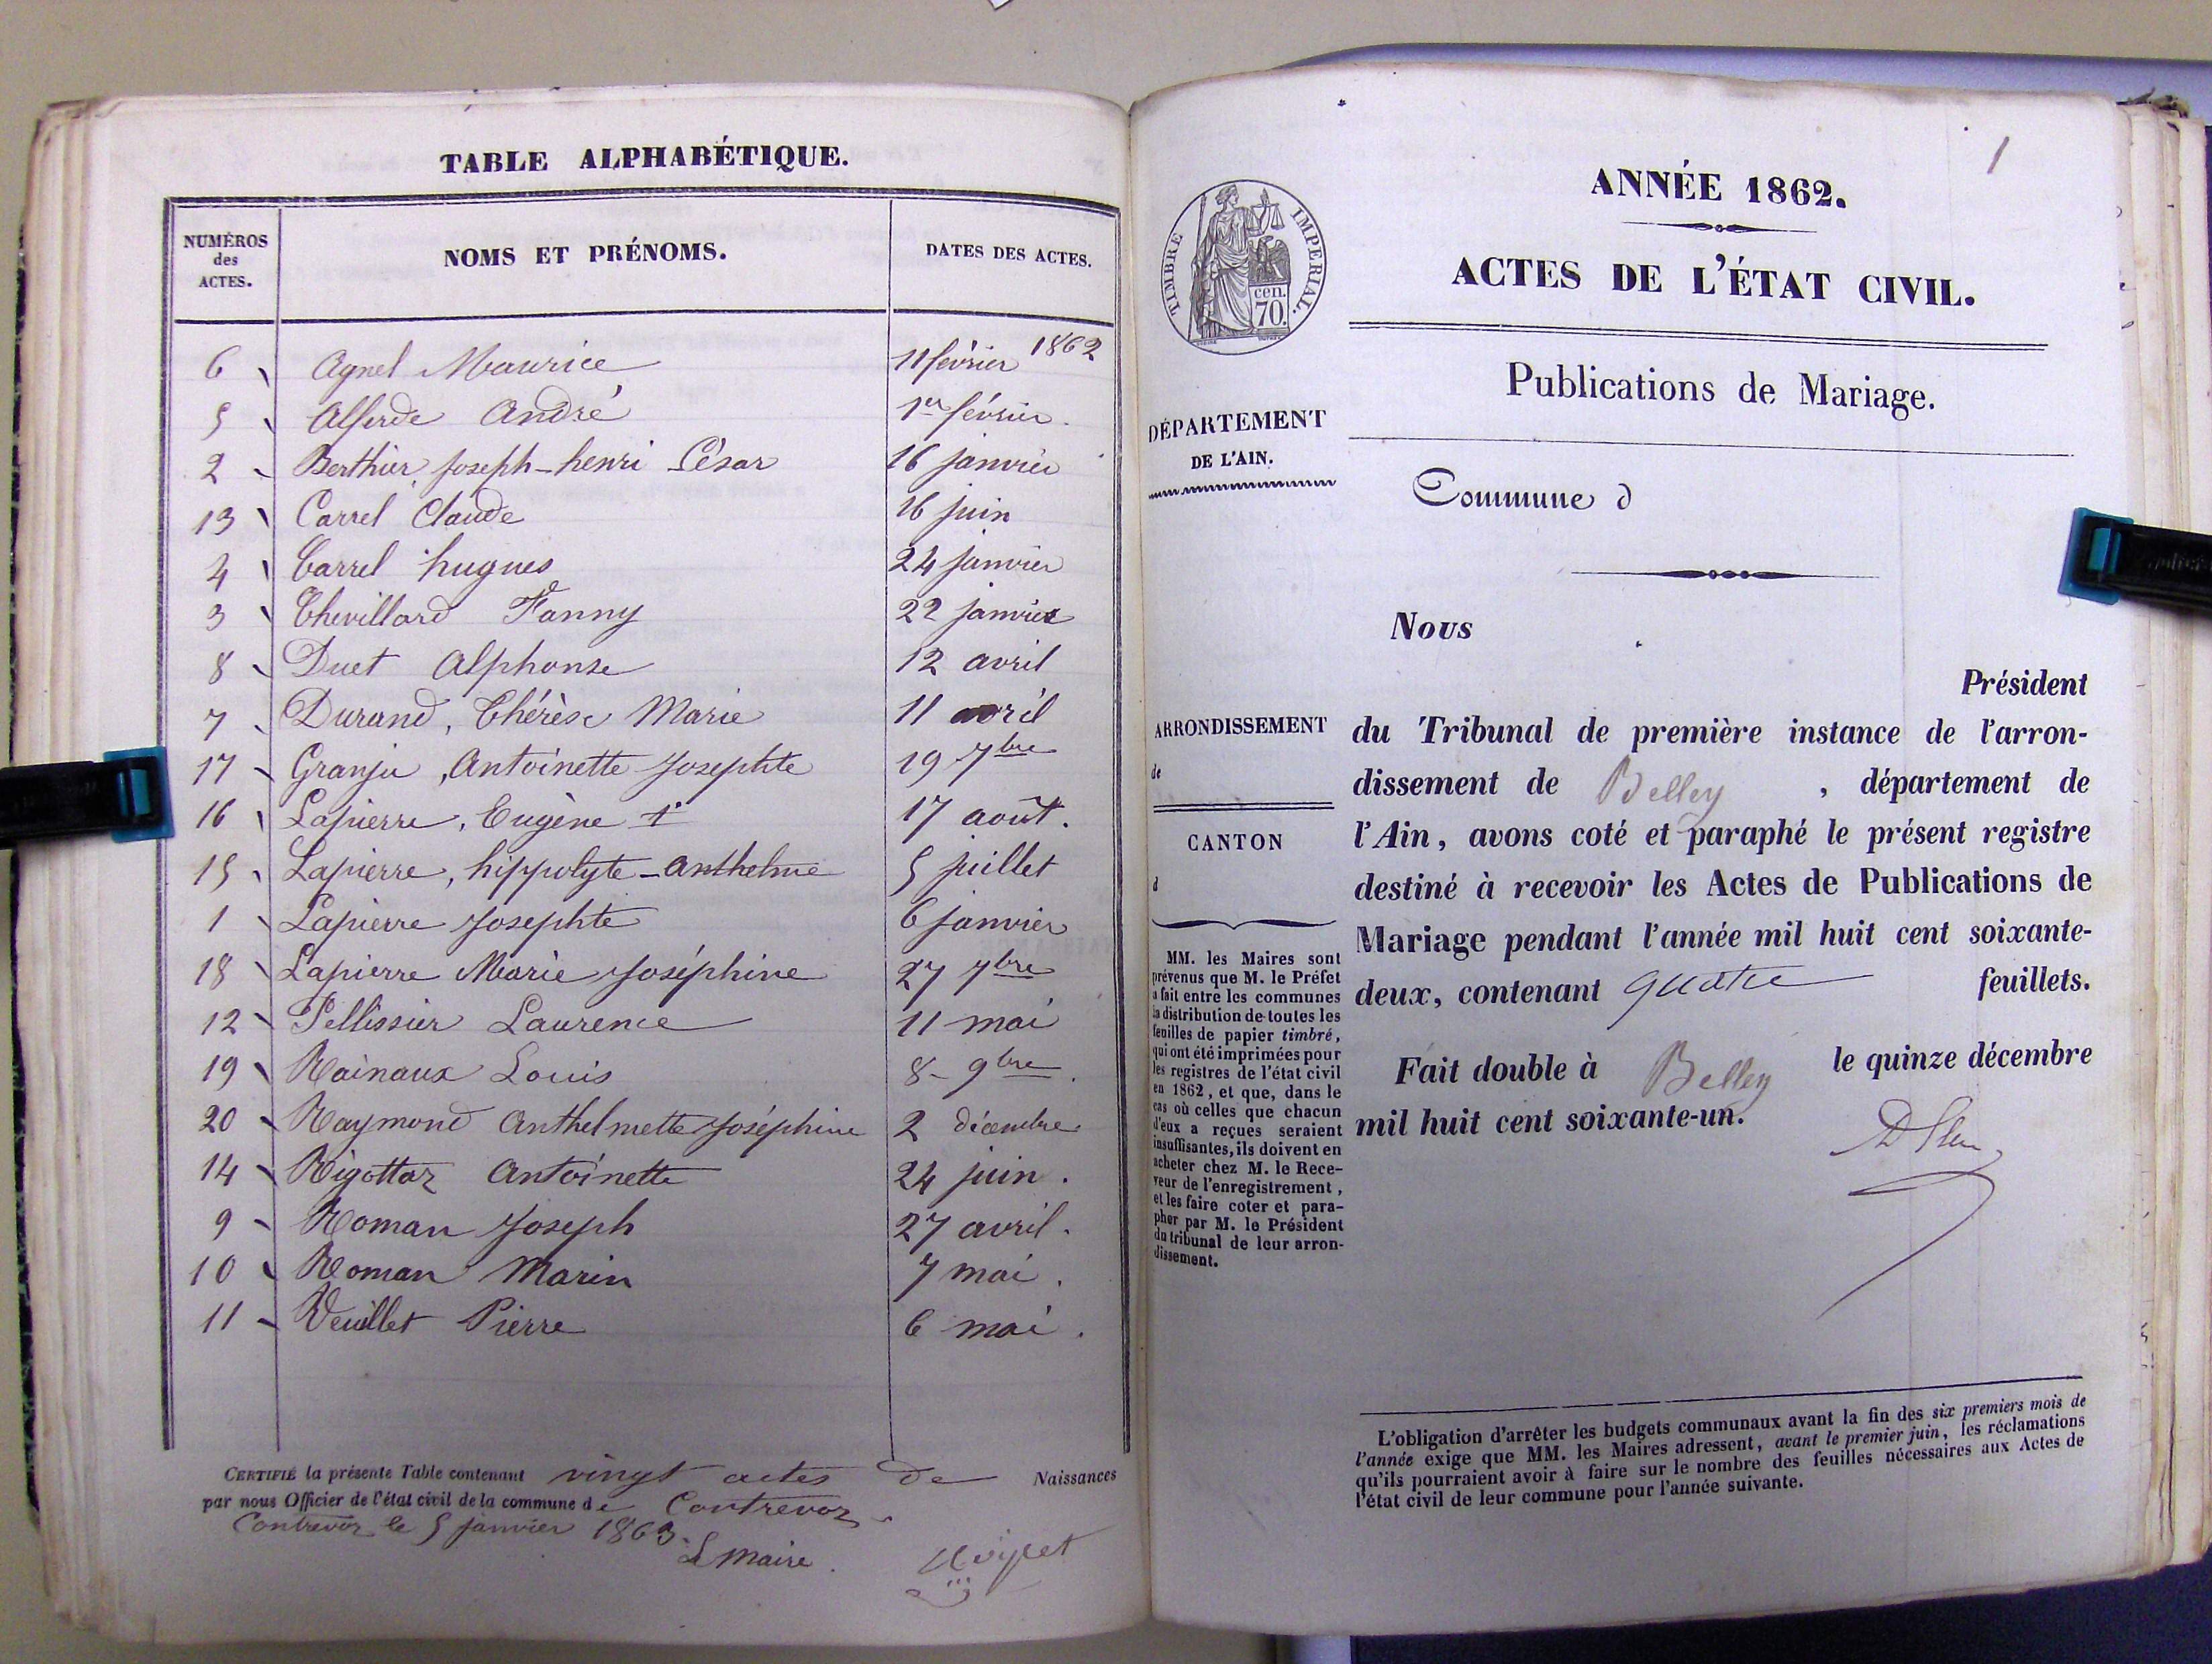 TABLE ALPHABÉTIQUE.
NUMÉROS des ACTES. NOMS ET PRÉNOMS. DATES DES ACTES.
6 Agnel Maurice 11 février 1862
5 Alferde André 1er février.
2 Berthier, Joseph-henri César 16 janvier
13 Carrel Claude 16 juin
4 Carrel hugues 24 janvier
3 Chevillard Fanny 22 janvier
8 Duet Alphonse 12 avril
7 Durand, Thérèse Marie 11 avril
17 Granju, Antoinette Josephte 19 7bre
16 Lapierre, Eugène 17 août.
15 Lapierre, hippolyte-anthelme 5 juillet
1 Lapierre Josephte 6 janvier
18 Lapierre Marie Joséphine 27 7bre
12 Pellissier Laurence 11 mai
19 Rainaux Louis 8-9bre.
20 Raymond Anthelmette Joséphine 2 décembre
14 Rigottaz Antoinette 24 juin.
9 Roman Joseph 27 avril.
10 Roman Marin 7 mai.
11 Veuillet Pierre 6 mai.
CERTIFIÉ la présente Table contenant vingt actes de Naissances
par nous Officier de l'état civil de la commune de Contrevoz
Contrevoz le 5 janvier 1863.
Le Maire.
1
ANNÉE 1862.
ACTES DE L'ÉTAT CIVIL.
Publications de Mariage.
Commune d
TIMBRE IMPERIAL.
cen.
70.
DÉPARTEMENT
DE L'AIN.
ARRONDISSEMENT
de
CANTON
d
MM. les Maires sont
prévenus que M. le Préfet
a fait entre les communes
la distribution de toutes les
feuilles de papier timbré,
qui ont été imprimées pour
les registres de l'état civil
en 1862, et que, dans le
cas où celles que chacun
d'eux a reçues seraient
insuffisantes, ils doivent en
acheter chez M. le Rece-
veur de l'enregistrement,
et les faire coter et para-
pher par M. le Président
du tribunal de leur arron-
dissement.
Nous
Président
du Tribunal de première instance de l'arron-
dissement de Belley, département de
l'Ain, avons coté et paraphé le présent registre
destiné à recevoir les Actes de Publications de
Mariage pendant l'année mil huit cent soixante-
deux, contenant quatre feuillets.
Fait double à Belley le quinze décembre
mil huit cent soixante-un.
L'obligation d'arrêter les budgets communaux avant la fin des six premiers mois de
l'année exige que MM. les Maires adressent, avant le premier juin, les réclamations
qu'ils pourraient avoir à faire sur le nombre des feuilles nécessaires aux Actes de
l'état civil de leur commune pour l'année suivante.